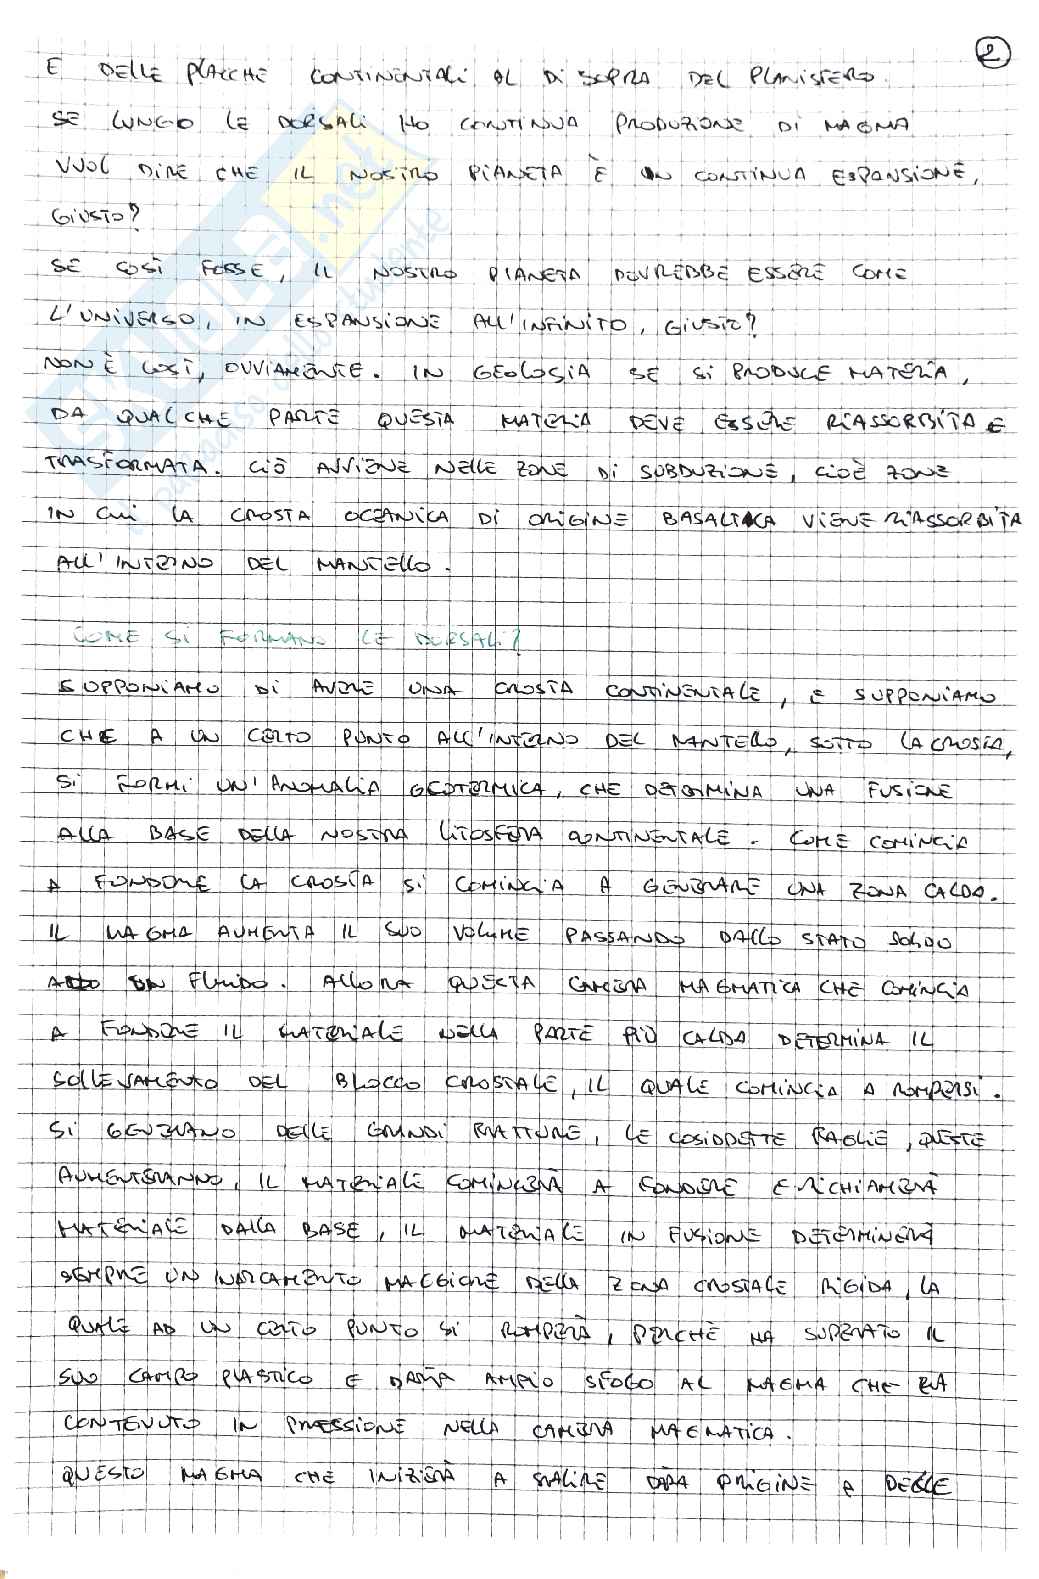 2
E DELLE PLACCHE CONTINENTALI AL DI SOPRA DEL PLANISFERO.
SE LUNGO LE DORSALI HO CONTINUA PRODUZIONE DI MAGMA
VUOL DIRE CHE IL NOSTRO PIANETA È IN CONTINUA ESPANSIONE,
GIUSTO?
SE COSÌ FOSSE, IL NOSTRO PIANETA DOVREBBE ESSERE COME
L'UNIVERSO, IN ESPANSIONE ALL'INFINITO, GIUSTO?
NON È COSÌ, OVVIAMENTE. IN GEOLOGIA SE SI PRODUCE MATERIA,
DA QUALCHE PARTE QUESTA MATERIA DEVE ESSERE RIASSORBITA E
TRASFORMATA. CIÒ AVVIENE NELLE ZONE DI SUBDUZIONE, CIOÈ ZONE
IN CUI LA CROSTA OCEANICA DI ORIGINE BASALTICA VIENE RIASSORBITA
ALL'INTERNO DEL MANTELLO.
COME SI FORMANO LE DORSALI?
SUPPONIAMO DI AVERE UNA CROSTA CONTINENTALE, E SUPPONIAMO
CHE A UN CERTO PUNTO ALL'INTERNO DEL MANTELLO, SOTTO LA CROSTA,
SI FORMI UN'ANOMALIA GEOTERMICA, CHE DETERMINA UNA FUSIONE
ALLA BASE DELLA NOSTRA LITOSFERA CONTINENTALE. COME COMINCIA
A FONDERE LA CROSTA SI COMINCIA A GENERARE UNA ZONA CALDA.
IL MAGMA AUMENTA IL SUO VOLUME PASSANDO DALLO STATO SOLIDO
AD UN FLUIDO. ALLORA QUESTA CAMERA MAGMATICA CHE COMINCIA
A FONDERE IL MATERIALE NELLA PARTE PIÙ CALDA DETERMINA IL
SOLLEVAMENTO DEL BLOCCO CROSTALE, IL QUALE COMINCIA A ROMPERSI.
SI GENERANO DELLE GRANDI FRATTURE, LE COSIDDETTE FAGLIE, QUESTE
AUMENTERANNO, IL MATERIALE COMINCERÀ A FONDERE E RICHIAMERÀ
MATERIALE DALLA BASE, IL MATERIALE IN FUSIONE DETERMINERÀ
SEMPRE UN INARCAMENTO MAGGIORE DELLA ZONA CROSTALE RIGIDA, LA
QUALE AD UN CERTO PUNTO SI ROMPERÀ, PERCHÈ HA SUPERATO IL
SUO CAMPO PLASTICO E DARÀ AMPIO SFOGO AL MAGMA CHE ERA
CONTENUTO IN PRESSIONE NELLA CAMERA MAGMATICA.
QUESTO MAGMA CHE INIZIERÀ A SALIRE DARÀ ORIGINE A DELLE
SKUOLA.net
il paradiso dello studente